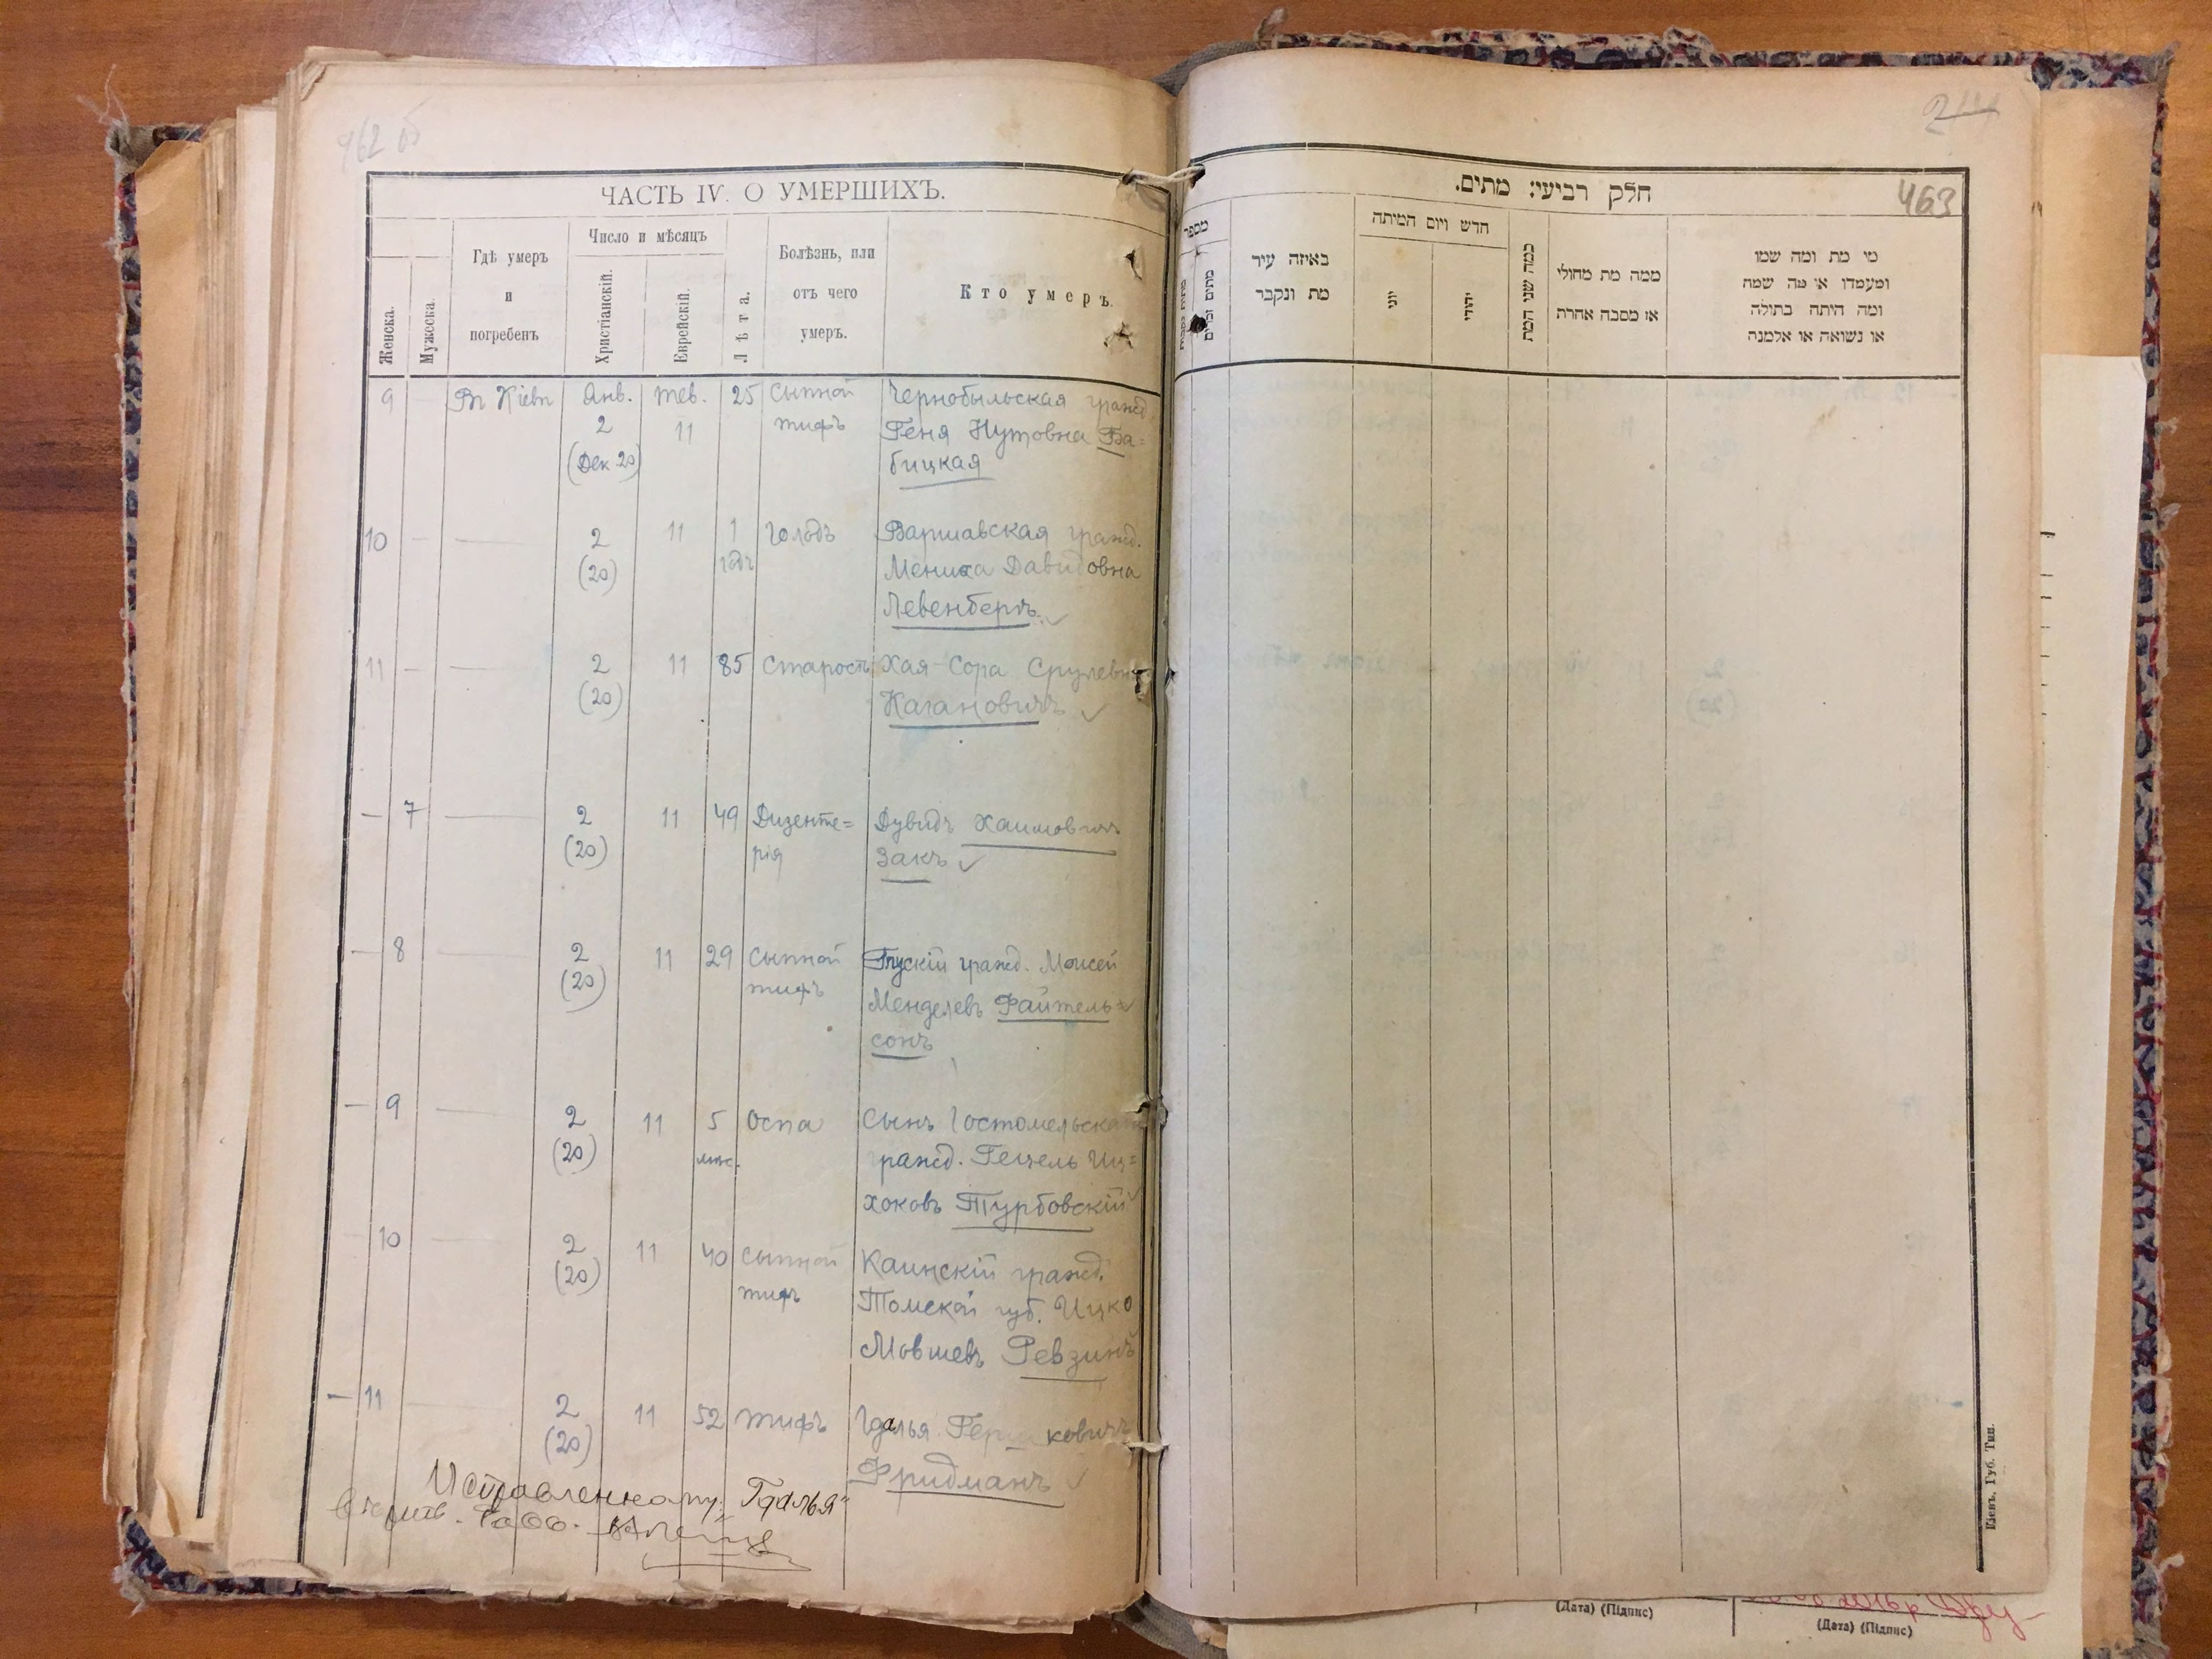 462 об
ЧАСТЬ IV. О УМЕРШИХЪ.
Женска.
Мужеска.
Гдѣ умеръ
и
погребенъ
Число и мѣсяцъ
Христіанскій.
Еврейскій.
Лѣта.
Болѣзнь, или
отъ чего
умеръ.
Кто умеръ.
9 — Въ Кіевѣ Янв. Тев. 25 Сыпной Чернобыльская гражд.
2 11 тифъ Геня Нутовна Ба=
(Дек 20) бицкая
10 — 2 11 1 Голодъ Варшавская гражд.
(20) годъ Мениха Давидовна
Левенбергъ.
11 — 2 11 85 Старость Хая-Сора Срулевна
(20) Кагановичъ
— 7 2 11 49 Дизенте= Дувидъ Хаимовичъ
(20) рія Закъ
— 8 2 11 29 Сыпной Глускій гражд. Моисей
(20) тифъ Менделевъ Файтель=
сонъ
— 9 2 11 5 Оспа Сынъ Гостомельскаго
(20) мѣс. гражд. Гецель Иц=
хоковъ Турбовскій
10 2 11 40 Сыпной Каинскій гражд.
(20) тифъ Томской губ. Ицко
Мовшевъ Ревзинъ
— 11 2 11 52 Тифъ Гдалья Гершковичъ
(20) Фридманъ
Исправленному „Гдалья"
вѣрить. Рабб.
214
463
חלק רביעי: מתים.
מספר
מתים זכרים
באיזה עיר
מת ונקבר
חדש ויום המיתה
יוני
יהודי
כמה שני המת
ממה מת מחולי
או מסבה אחרת
מי מת ומה שמו
ומעמדו או מה שמה
ומה היתה בתולה
או נשואה או אלמנה
Кіевъ, Губ. Тип.
(Дата) (Підпис)
(Дата) (Підпис)